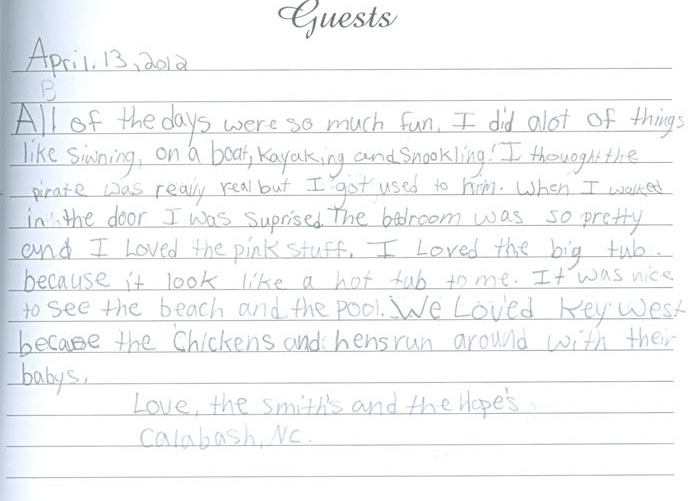 Guests
April. 13, 2012
B
All of the days were so much fun. I did alot of things
like Siwning, on a boat, Kayaking and Snookling! I thouoght the
pirate was really real but I got used to him. When I walked
in the door I was Suprised. The bedroom was so pretty
and I Loved the pink stuff. I Loved the big tub.
because it look like a hot tub to me. It was nice
to see the beach and the pool. We Loved Key West
becaose the Chickens and hens run around with their
babys.
Love, the Smith's and the Hope's
Calabash, Nc.